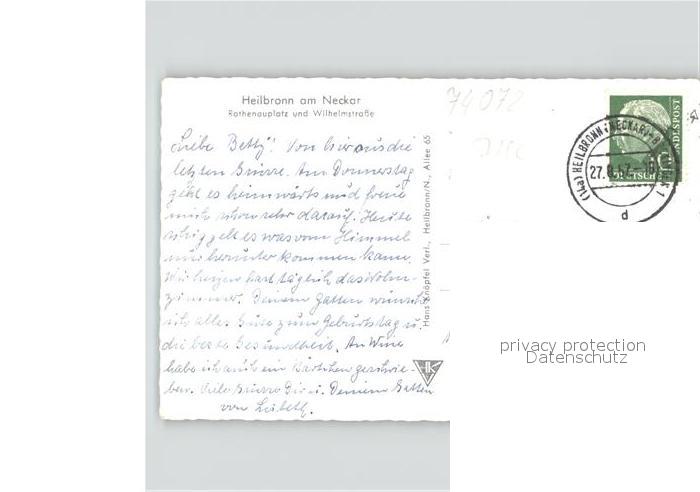 Heilbronn am Neckar
Rathenauplatz und Wilhelmstraße
74072
Liebe Betty! Von hier aus die
letzten Grüsse. Am Donnerstag
geht es heimwärts und freue
mich schon sehr darauf. Heute
geht es was vom Himmel
nur herunter kommen kann.
Wir heizen fast täglich das Wohn-
zimmer. Deinem Gatten wünsche
ich alles Gute zum Geburtstag u.
die beste Gesundheit. An
habe ich auch ein Kärtchen geschrie-
ben. Viele Grüsse Dir u. Deinem Gatten
von
Hans Knöpfel Verl., Heilbronn/N., Allee 65
HK
(14a) HEILBRONN (NECKAR)
27.8.57
d
DEUTSCHE BUNDESPOST
10
privacy protection
Datenschutz